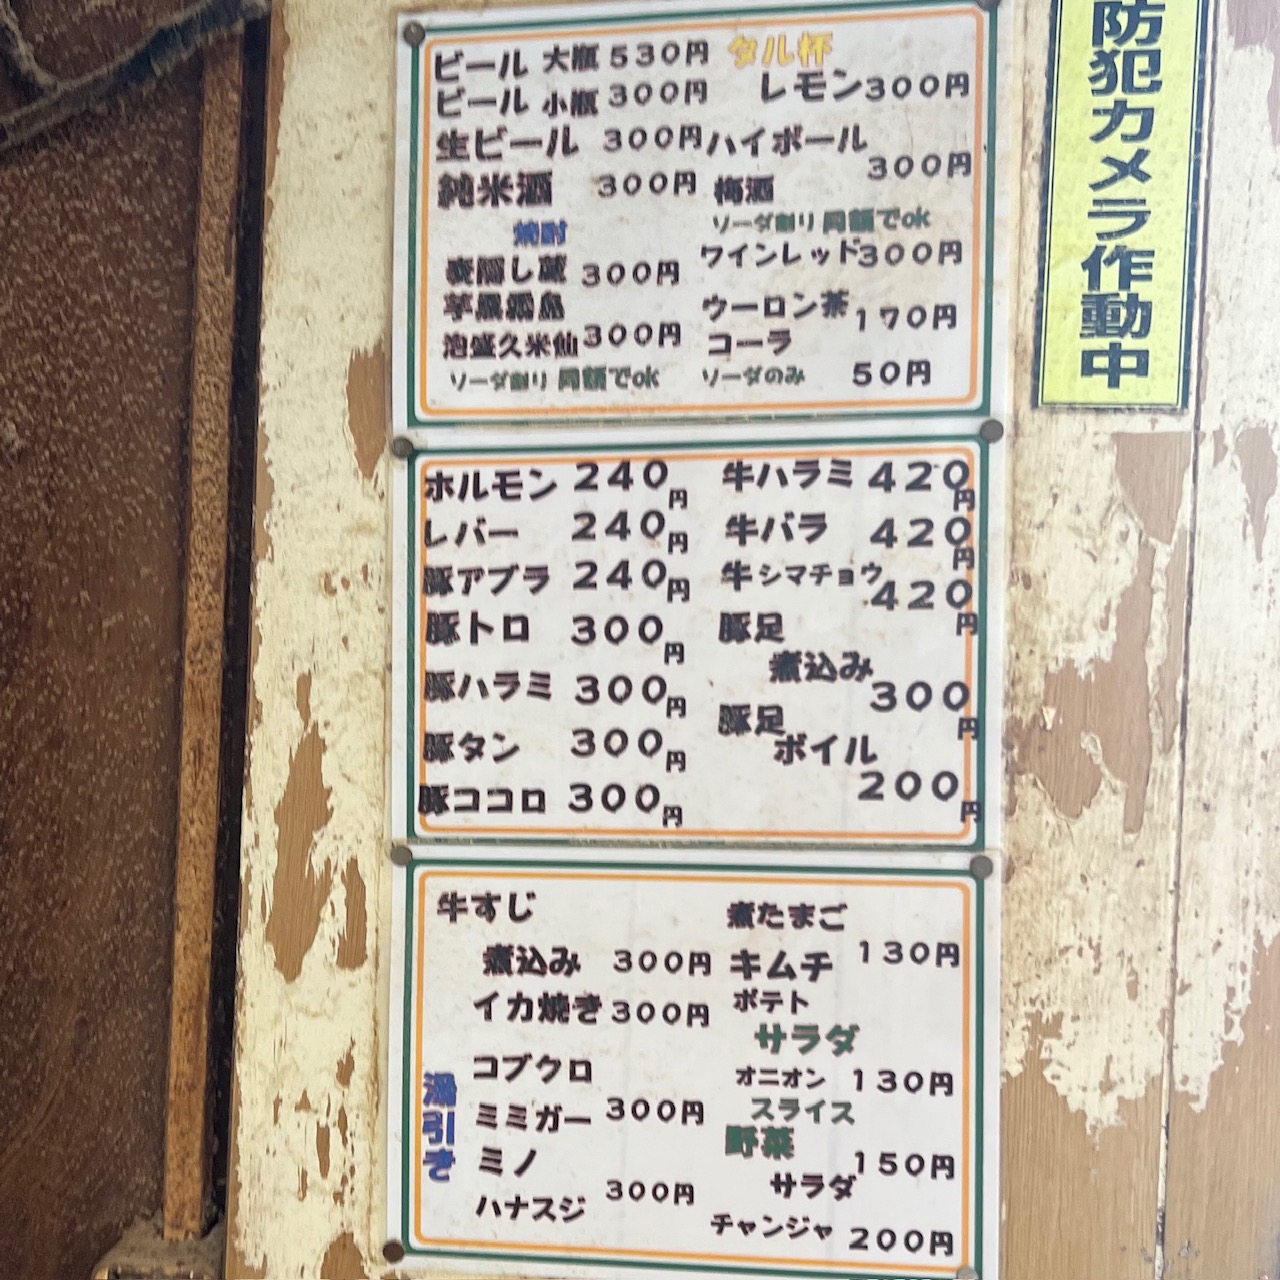 ビール 大瓶 530円
ビール 小瓶 300円
生ビール 300円
純米酒 300円
焼酎
麦隠し蔵 300円
芋黒霧島
泡盛久米仙 300円
ソーダ割り 同額でok
タル杯
レモン 300円
ハイボール
300円
梅酒
ソーダ割り 同額でok
ワインレッド300円
ウーロン茶 170円
コーラ
ソーダのみ 50円
ホルモン 240円
レバー 240円
豚アブラ 240円
豚トロ 300円
豚ハラミ 300円
豚タン 300円
豚ココロ 300円
牛ハラミ 420円
牛バラ 420円
牛シマチョウ
420円
豚足
煮込み
300円
豚足
ボイル
200円
牛すじ
煮込み 300円
イカ焼き 300円
湯引き
コブクロ
ミミガー 300円
ミノ
300円
ハナスジ
煮たまご
キムチ 130円
ポテト
サラダ
オニオン 130円
スライス
野菜
150円
サラダ
チャンジャ 200円
防犯カメラ作動中